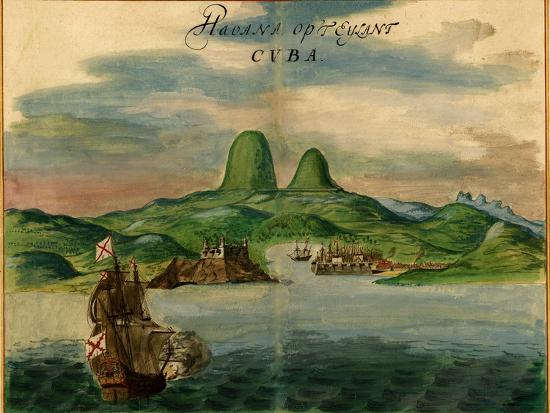 Havana opt Eylant
CVBA.